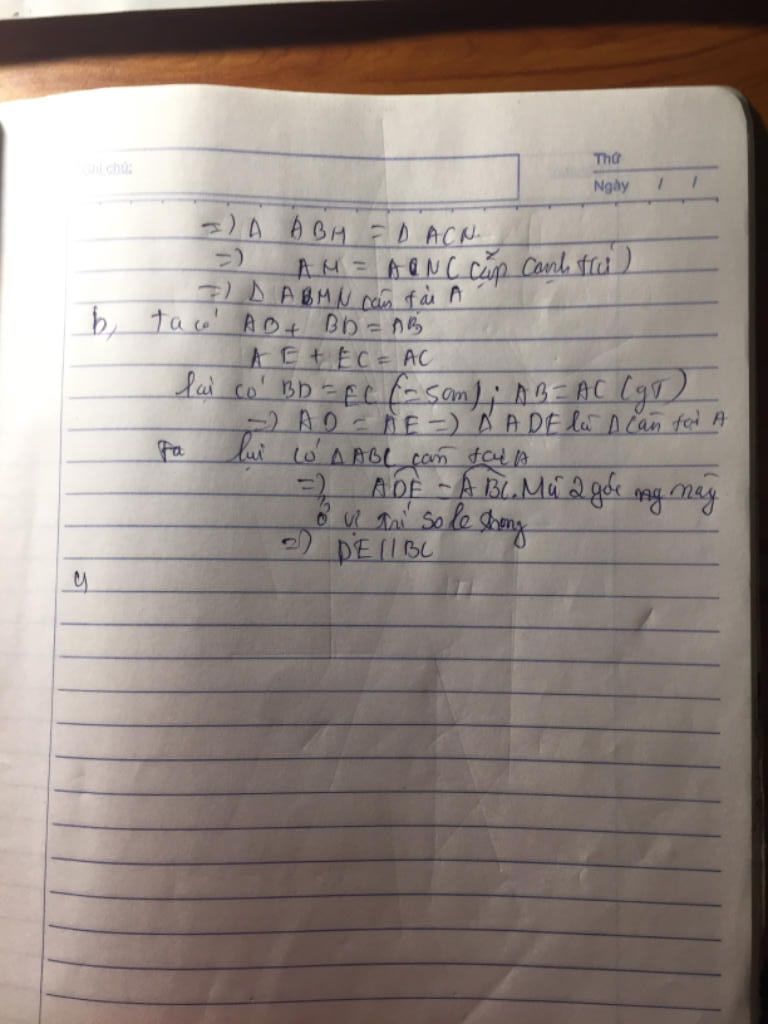 Ghi chú:
Thứ
Ngày / /
=) Δ ABM = Δ ACN.
=) AM = AN (cặp cạnh t/ứ)
=) Δ AMN cân tại A
b, Ta có AD + BD = AB
AE + EC = AC
lại có BD = EC (= 5cm) ; AB = AC (gT)
=) AD = AE =) Δ ADE là Δ cân tại A
Ta lại có Δ ABC cân tại A
=) ADE = ABC. Mà 2 góc này
ở vị trí so le trong
=) DE // BC
c,